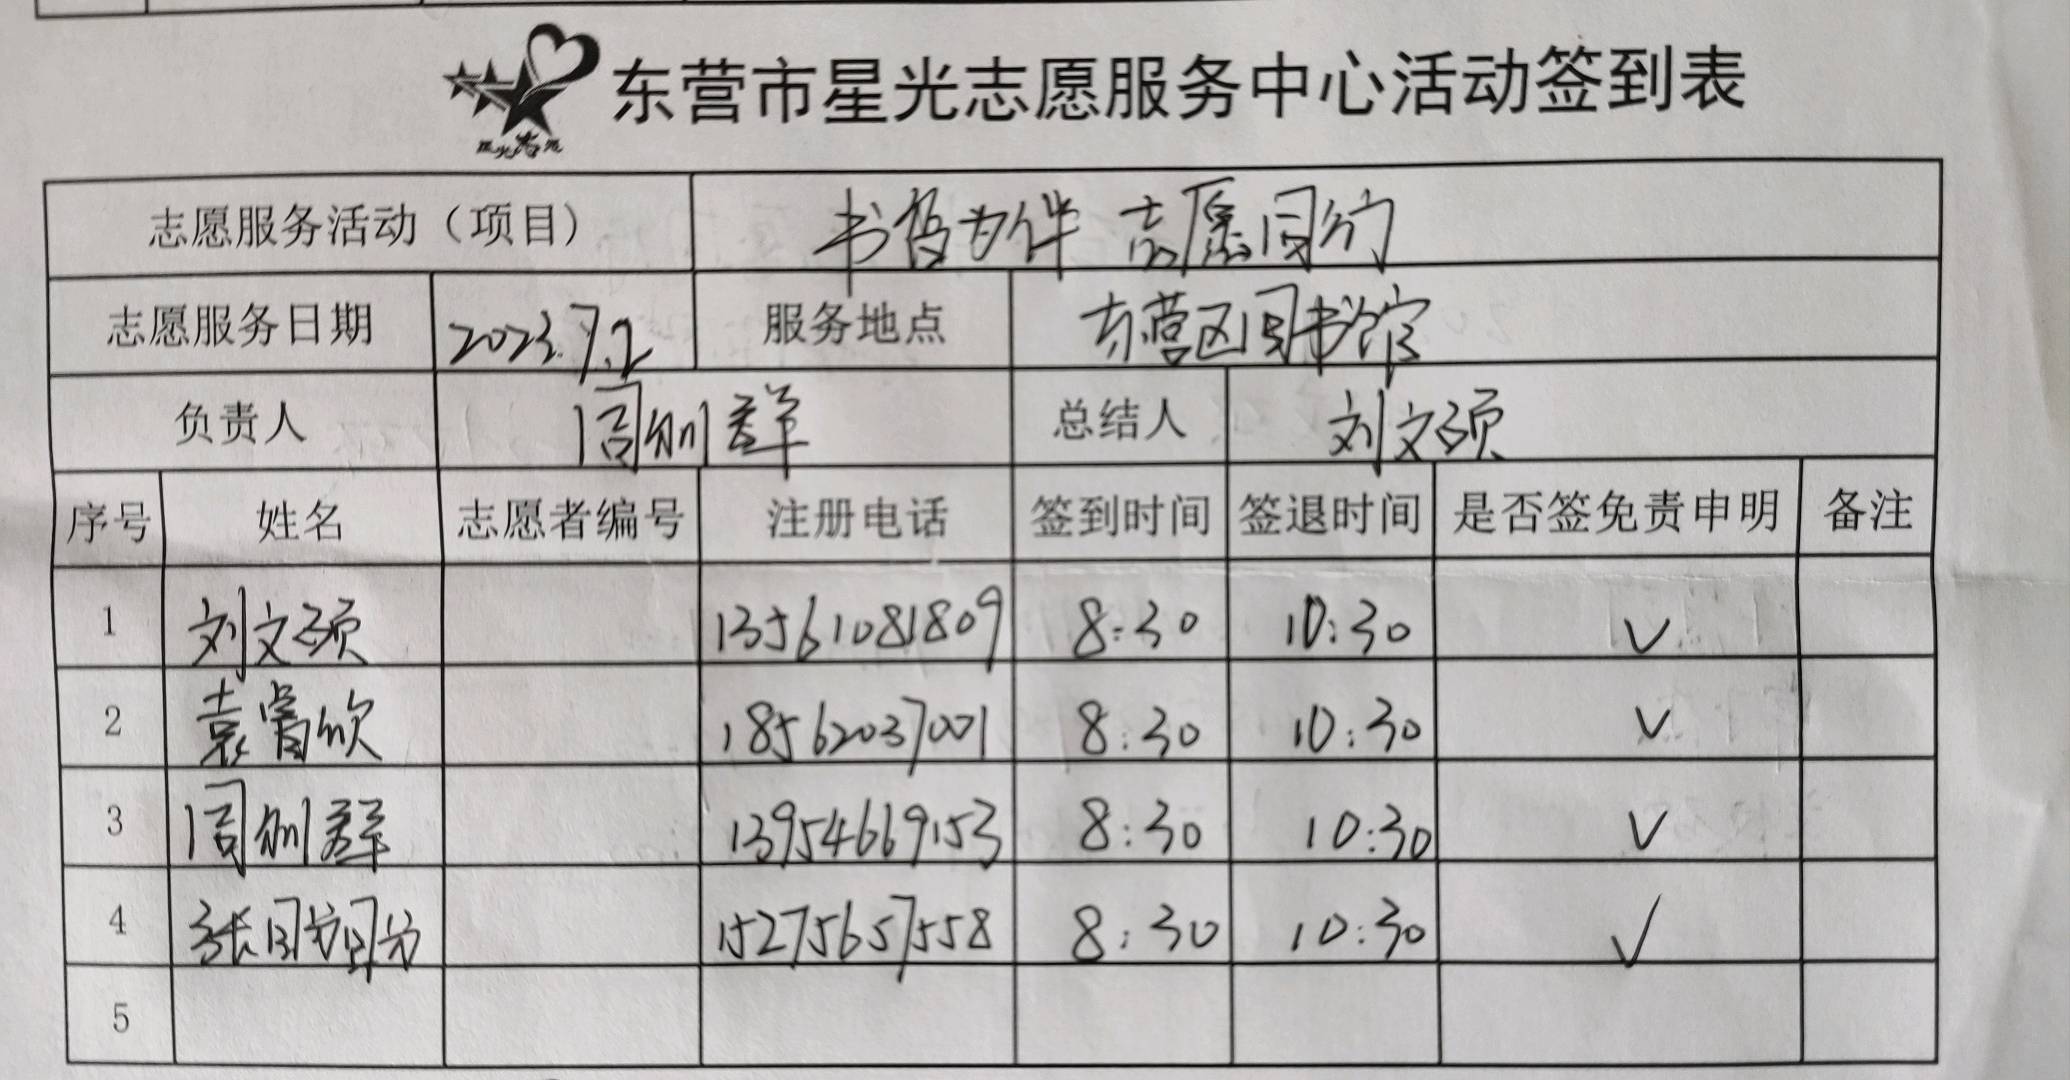 东营市星光志愿服务中心活动签到表
星光志愿
志愿服务活动（项目） 书香为伴 志愿同行
志愿服务日期 2023.7.2 服务地点 东营区图书馆
负责人 周训群 总结人 刘文硕
序号 姓名 志愿者编号 注册电话 签到时间 签退时间 是否签免责申明 备注
1 刘文硕 13561081809 8:30 10:30 √
2 袁 欣 18562037001 8:30 10:30 √
3 周训群 13954669153 8:30 10:30 √
4 张 15275657558 8:30 10:30 √
5